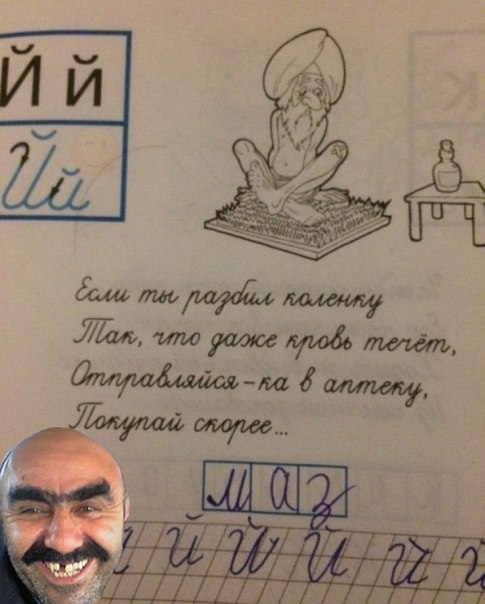 Й й
Й й
Если ты разбил коленку
Так, что даже кровь течёт,
Отправляйся-ка в аптеку,
Покупай скорее...
маз
й й й й й